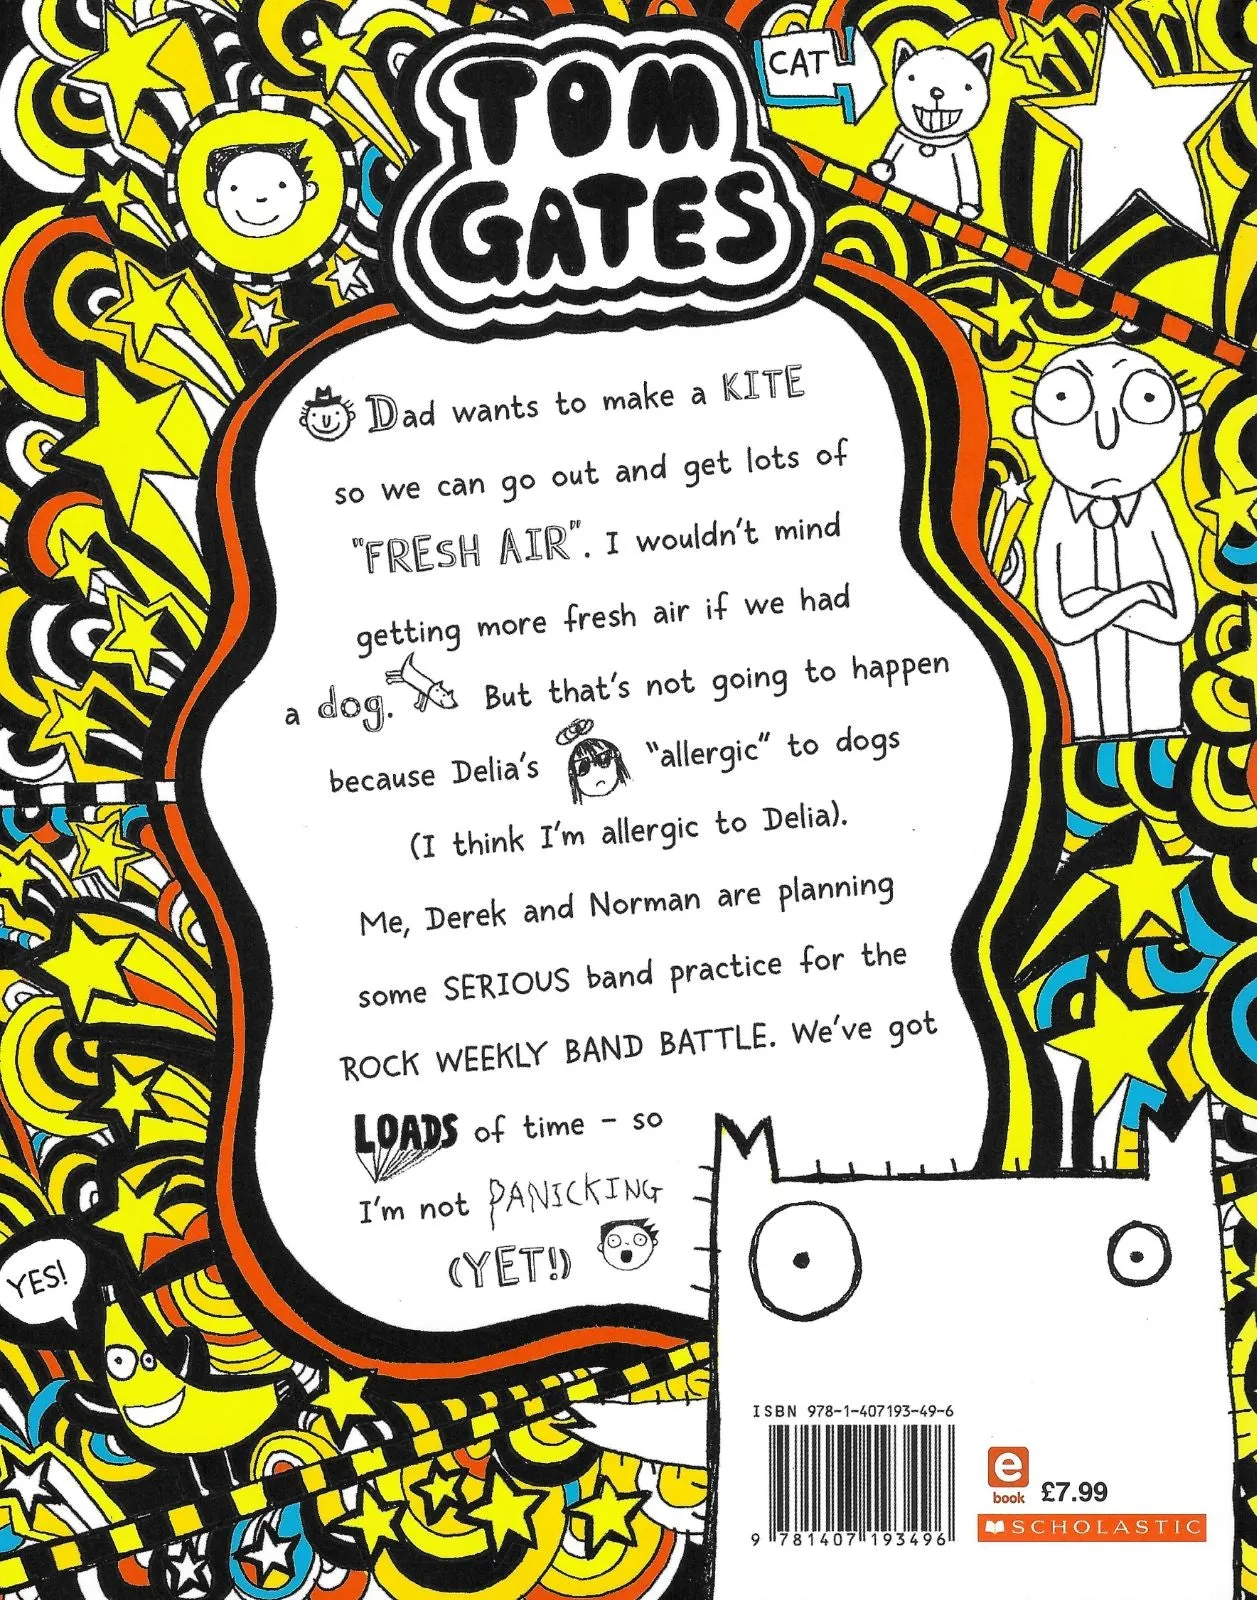 TOM
GATES
CAT
Dad wants to make a KITE
so we can go out and get lots of
"FRESH AIR". I wouldn't mind
getting more fresh air if we had
a dog. But that's not going to happen
because Delia's "allergic" to dogs
(I think I'm allergic to Delia).
Me, Derek and Norman are planning
some SERIOUS band practice for the
ROCK WEEKLY BAND BATTLE. We've got
LOADS of time – so
I'm not PANICKING
(YET!)
YES!
ISBN 978-1-407193-49-6
9 781407 193496
e
book
£7.99
SCHOLASTIC